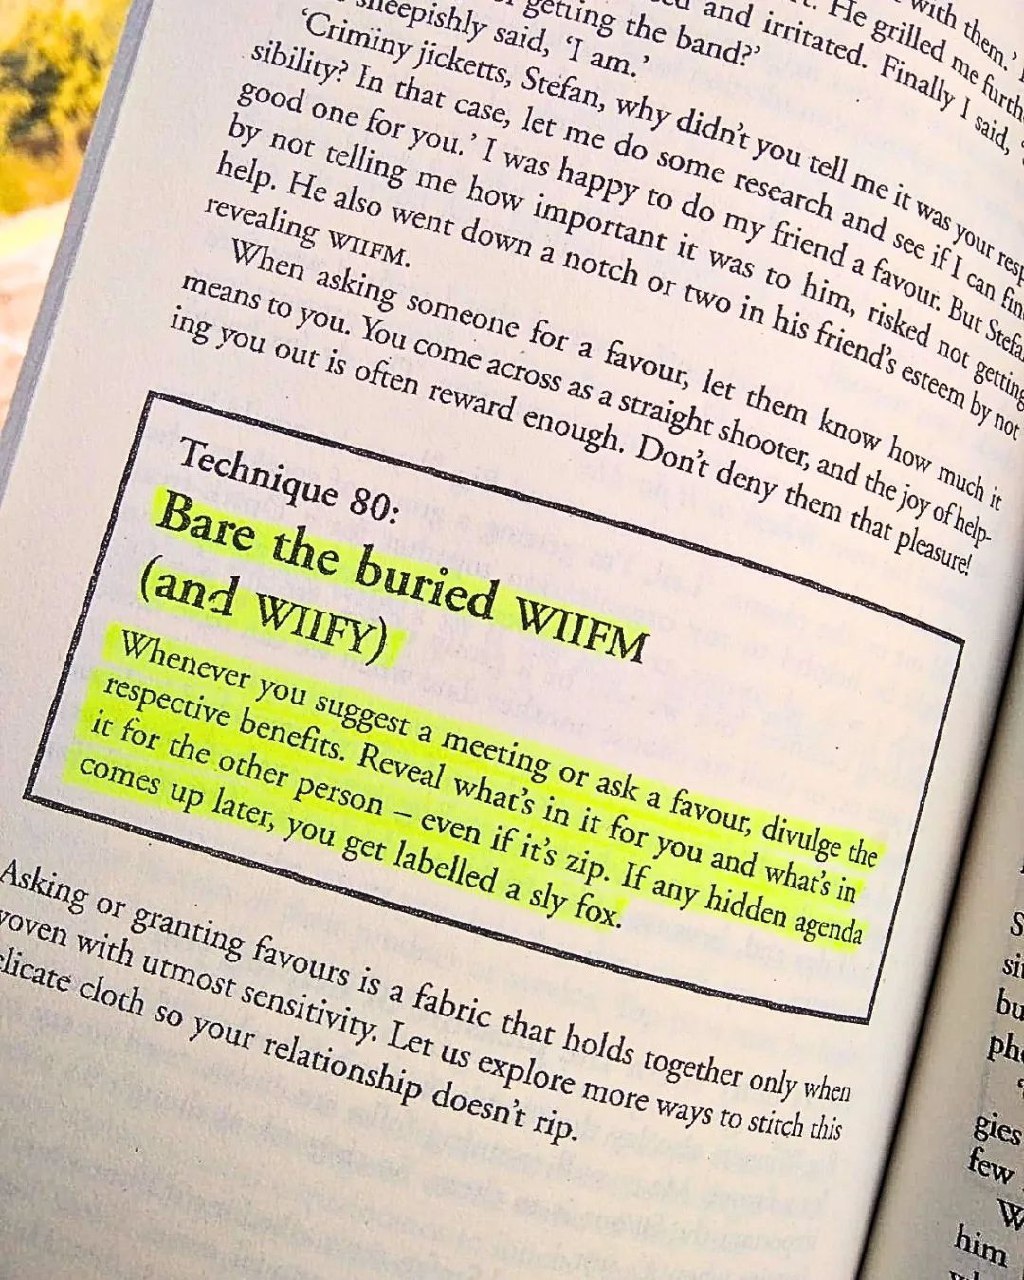 with them.'
. He grilled me furth
and irritated. Finally I said,
getting the band?'
sheepishly said, 'I am.'
'Criminy jicketts, Stefan, why didn't you tell me it was your resp
sibility? In that case, let me do some research and see if I can fin
good one for you.' I was happy to do my friend a favour. But Stefa
by not telling me how important it was to him, risked not getting
help. He also went down a notch or two in his friend's esteem by not
revealing WIIFM.
When asking someone for a favour, let them know how much it
means to you. You come across as a straight shooter, and the joy of help-
ing you out is often reward enough. Don't deny them that pleasure!
Technique 80:
Bare the buried WIIFM
(and WIIFY)
Whenever you suggest a meeting or ask a favour, divulge the
respective benefits. Reveal what's in it for you and what's in
it for the other person – even if it's zip. If any hidden agenda
comes up later, you get labelled a sly fox.
Asking or granting favours is a fabric that holds together only when
woven with utmost sensitivity. Let us explore more ways to stitch this
elicate cloth so your relationship doesn't rip.
S
si
bu
pho
gies
few
W
him